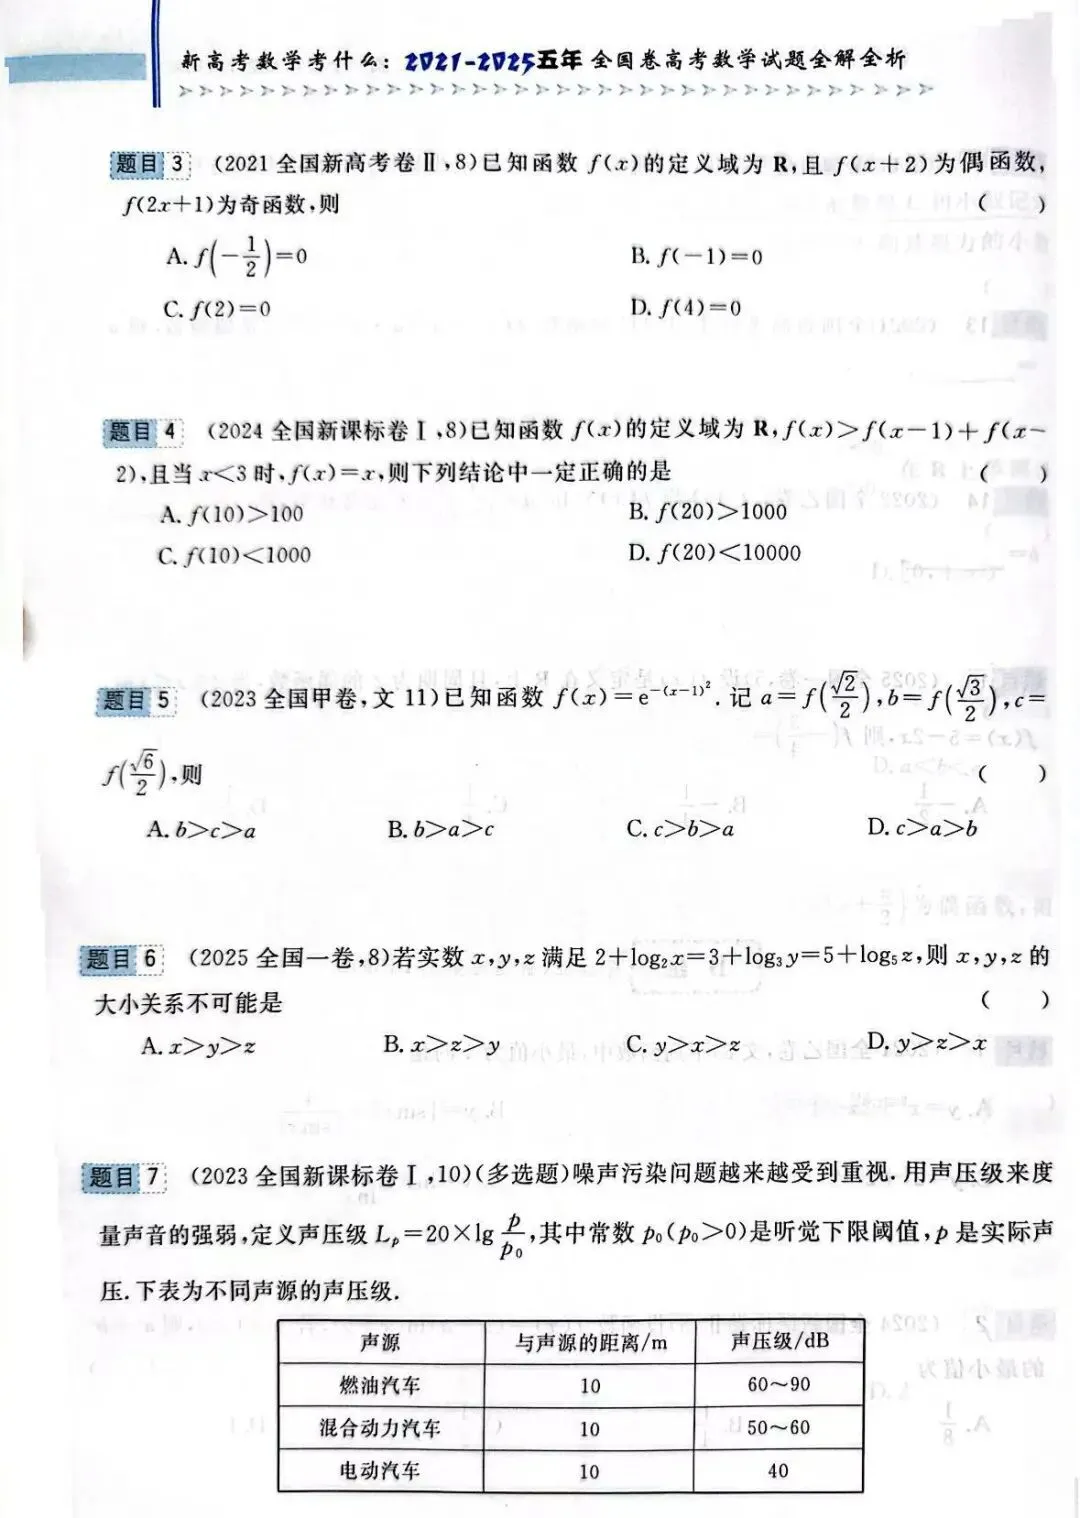 新高考数学考什么：2021-2025五年全国卷高考数学试题全解全析
题目3 (2021全国新高考卷Ⅱ,8)已知函数 f(x)的定义域为 R,且 f(x+2)为偶函数,
f(2x+1)为奇函数,则 ( )
A. f(-1/2)=0 B. f(-1)=0
C. f(2)=0 D. f(4)=0
题目4 (2024全国新课标卷Ⅰ,8)已知函数 f(x)的定义域为 R,f(x)>f(x-1)+f(x-
2),且当 x<3 时,f(x)=x,则下列结论中一定正确的是 ( )
A. f(10)>100 B. f(20)>1000
C. f(10)<1000 D. f(20)<10000
题目5 (2023全国甲卷,文11)已知函数 f(x)=e^{-(x-1)²}. 记 a=f(√2/2),b=f(√3/2),c=
f(√6/2),则 ( )
A. b>c>a B. b>a>c C. c>b>a D. c>a>b
题目6 (2025全国一卷,8)若实数 x,y,z 满足 2+log₂x=3+log₃y=5+log₅z,则 x,y,z 的
大小关系不可能是 ( )
A. x>y>z B. x>z>y C. y>x>z D. y>z>x
题目7 (2023全国新课标卷Ⅰ,10)(多选题)噪声污染问题越来越受到重视. 用声压级来度
量声音的强弱,定义声压级 Lₚ=20×lg p/p₀,其中常数 p₀(p₀>0)是听觉下限阈值,p 是实际声
压. 下表为不同声源的声压级.
声源 与声源的距离/m 声压级/dB
燃油汽车 10 60～90
混合动力汽车 10 50～60
电动汽车 10 40